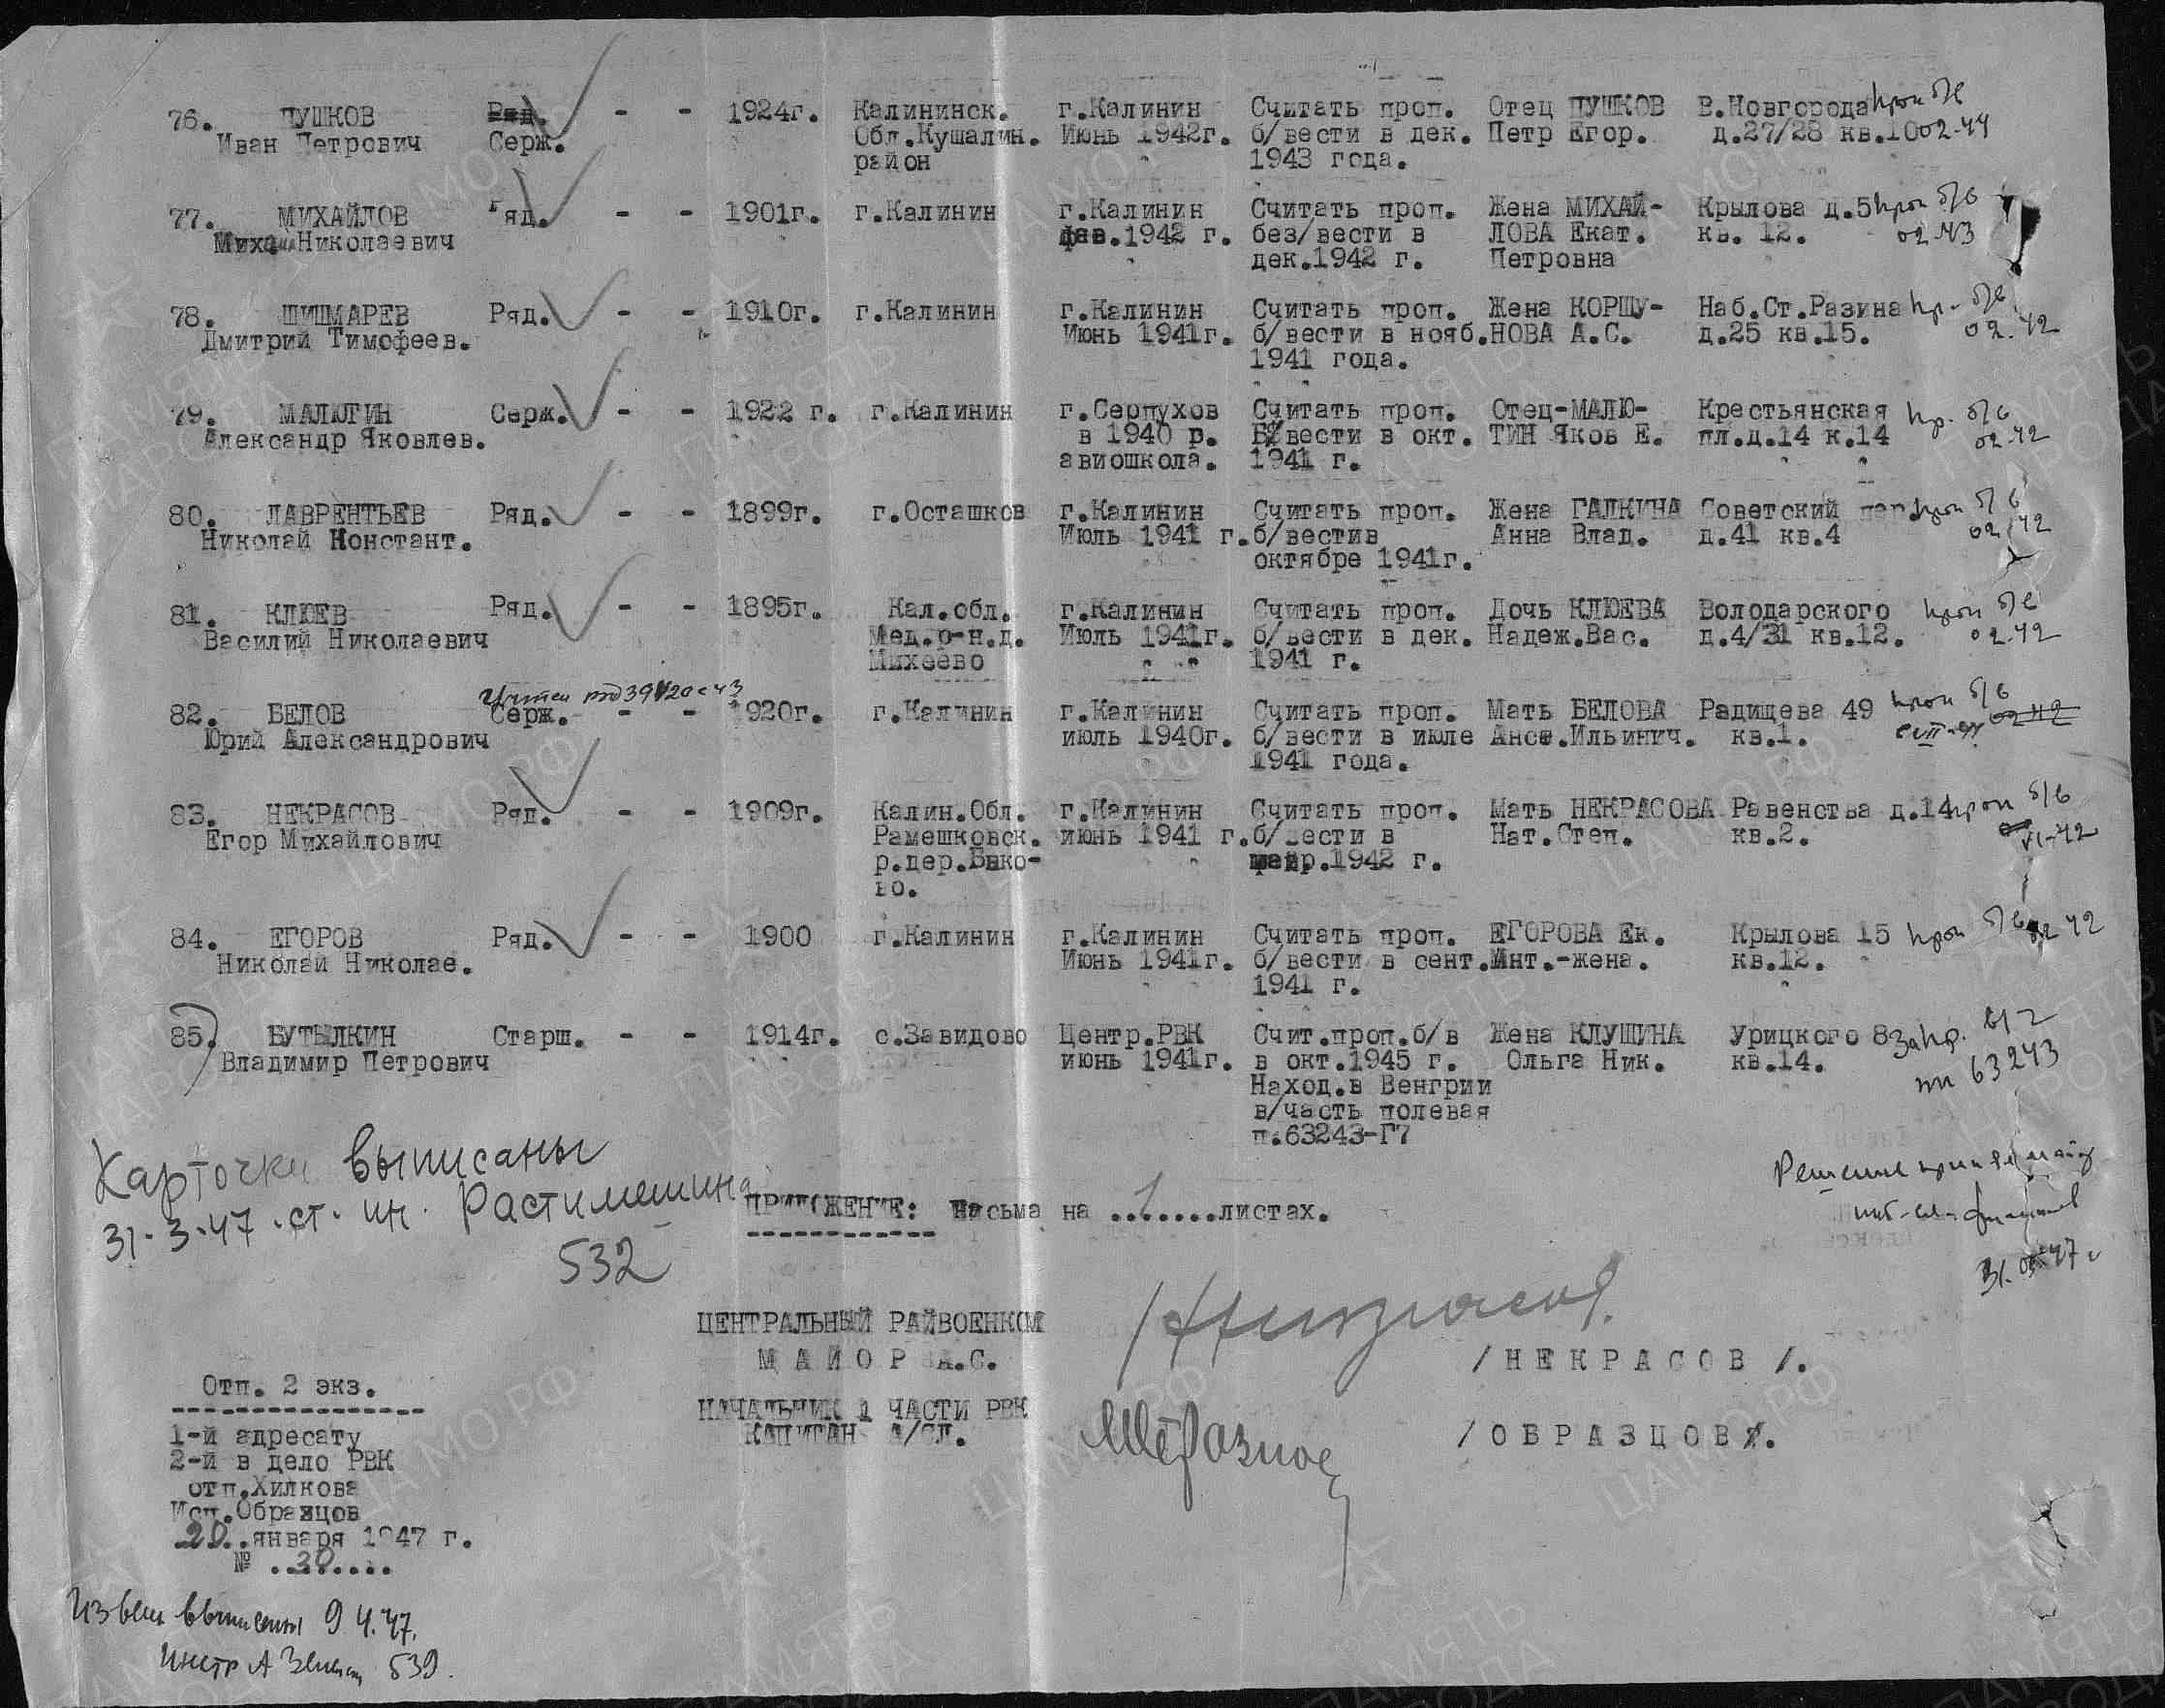 76. ПУШКОВ Ряд. - - 1924г. Калининск. г.Калинин Считать проп. Отец ПУШКОВ В.Новгорода проп б/в
Иван Петрович Серж. Обл.Кушалин. Июнь 1942г. б/вести в дек. Петр Егор. д.27/28 кв.10 02-44
район 1943 года.
77. МИХАЙЛОВ Ряд. - - 1901г. г.Калинин г.Калинин Считать проп. Жена МИХАЙ- Крылова д.5 проп б/в
Николаевич фев.1942 г. без/вести в ЛОВА Екат. кв. 12. 02-43
дек.1942 г. Петровна
78. ШИШМАРЕВ Ряд. - - 1910г. г.Калинин г.Калинин Считать проп. Жена КОРШУ- Наб.Ст.Разина пр. б/в
Дмитрий Тимофеев. Июнь 1941г. б/вести в нояб. НОВА А.С. д.25 кв.15. 02.42
1941 года.
79. МАЛЮТИН Серж. - - 1922 г. г.Калинин г.Серпухов Считать проп. Отец-МАЛЮ- Крестьянская пр. б/в
Александр Яковлев. в 1940 р. Б/вести в окт. ТИН Яков Е. пл.д.14 к.14 02-42
авиошкола. 1941 г.
80. ЛАВРЕНТЬЕВ Ряд. - - 1899г. г.Осташков г.Калинин Считать проп. Жена ГАЛКИНА Советский пер. проп б/в
Николай Констант. Июль 1941 г. б/вестив Анна Влад. д.41 кв.4 02.42
октябре 1941г.
81. КЛЮЕВ Ряд. - - 1895г. Кал.обл. г.Калинин Считать проп. Дочь КЛЮЕВА Володарского проп б/в
Василий Николаевич Мед.р-н.д. Июль 1941г. б/вести в дек. Надеж.Вас. д.4/31 кв.12. 02-42
Михеево 1941 г.
82. БЕЛОВ Серж. - - 1920г. г.Калинин г.Калинин Считать проп. Мать БЕЛОВА Радищева 49 проп б/в
Юрий Александрович июль 1940г. б/вести в июле Ильинич. кв.1. 02 42
1941 года.
83. НЕКРАСОВ Ряд. - - 1909г. Калин.Обл. г.Калинин Считать проп. Мать НЕКРАСОВА Равенства д.14 проп б/в
Егор Михайлович Рамешковск. июнь 1941 г. б/вести в Нат.Степ. кв.2. VI-42
р.дер.Быко- 1942 г.
во.
84. ЕГОРОВ Ряд. - - 1900 г.Калинин г.Калинин Считать проп. ЕГОРОВА Ек. Крылова 15 проп б/в 02 42
Николай Николае. Июнь 1941г. б/вести в сент. Ант.-жена. кв.12.
1941 г.
85. БУТЫЛКИН Старш. - - 1914г. с.Завидово Центр.РВК Счит.проп.б/в Жена КЛУШИНА Урицкого 83
Владимир Петрович июнь 1941г. в окт.1945 г. Ольга Ник. кв.14. пп 63243
Наход.в Венгрии
в/часть полевая
п.63243-Г7
Карточки выписаны
31-3-47 ст. ин. Растимешина
532
ПРИЛОЖЕНИЕ: письма на ..1....листах.
31.03.47 г
ЦЕНТРАЛЬНЫЙ РАЙВОЕНКОМ
МАЙОР А.С. /НЕКРАСОВ/.
НАЧАЛЬНИК 1 ЧАСТИ РВК
КАПИТАН А/СЛ. /ОБРАЗЦОВ/.
Отп. 2 экз.
1-й адресату
2-й в дело РВК
отп.Хилкова
Исп.Образцов
20..января 1947 г.
№ ..30....
Извещ выписаны 9 4.47.
инстр А 539.